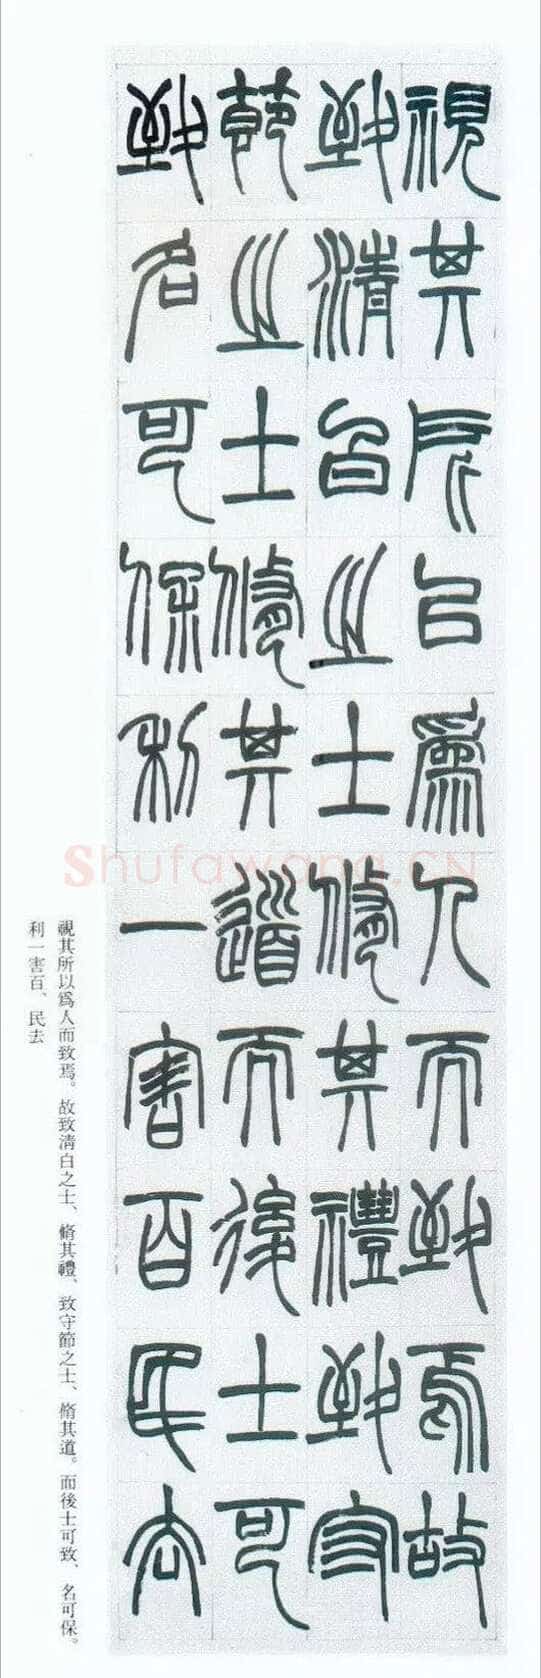 視其所以爲人而致焉故
致清白之士脩其禮致守
節之士脩其道而後士可
致名可保利一害百民去
視其所以爲人而致焉。故致清白之士、脩其禮、致守節之士、脩其道。而後士可致、名可保。
利一害百、民去
Shufawang.CN